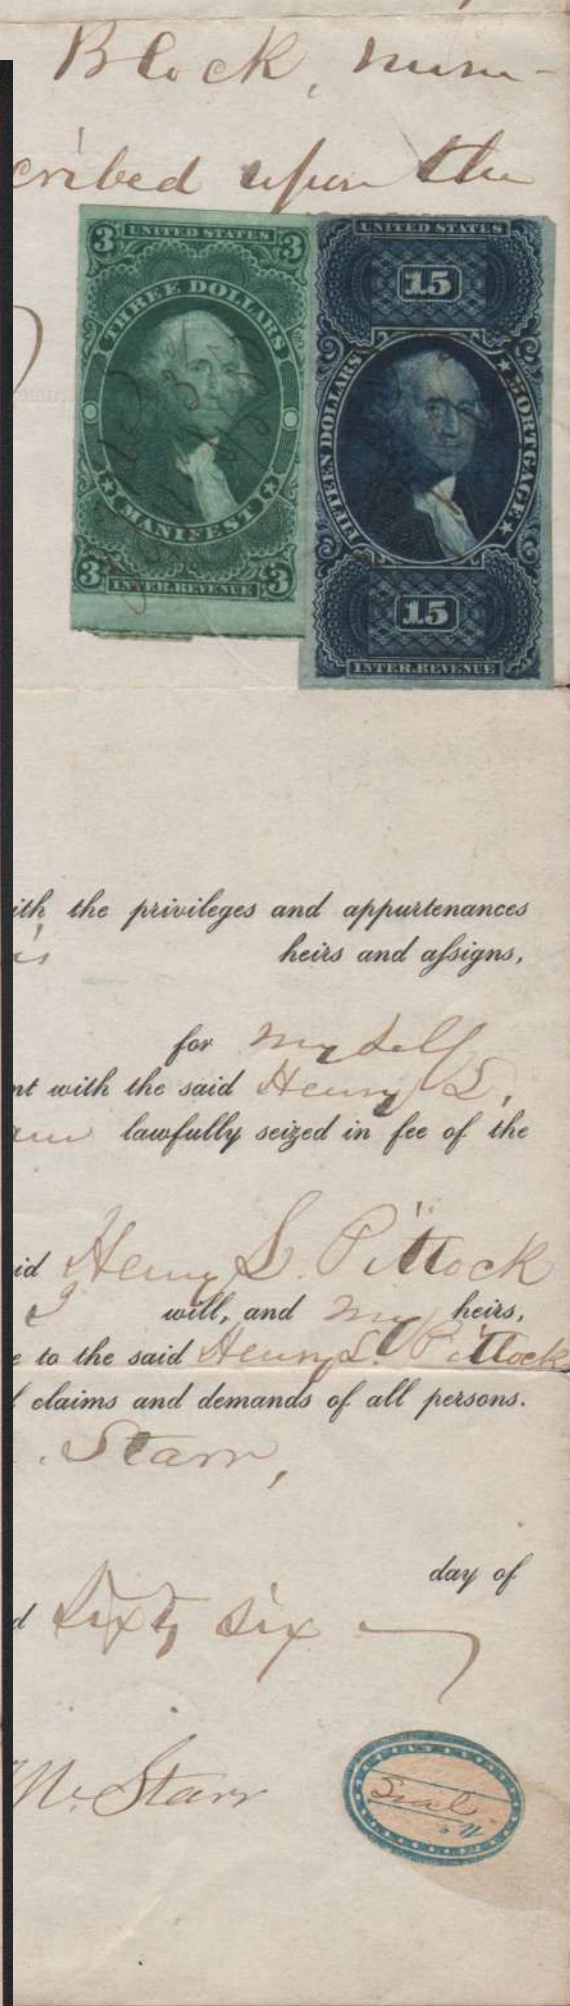 Block, num-
cribed upon the
3 UNITED STATES 3
THREE DOLLARS
MANIFEST
3 INTER.REVENUE 3
UNITED STATES
15
FIFTEEN DOLLARS
★ MORTGAGE ★
15
INTER.REVENUE
ith the privileges and appurtenances
is heirs and assigns,
for myself
nt with the said Henry L,
am lawfully seized in fee of the
id Henry L. Pittock
I will, and my heirs,
e to the said Henry L. Pittock
l claims and demands of all persons.
. Starr,
day of
d Sixty six
M. Starr
Seal